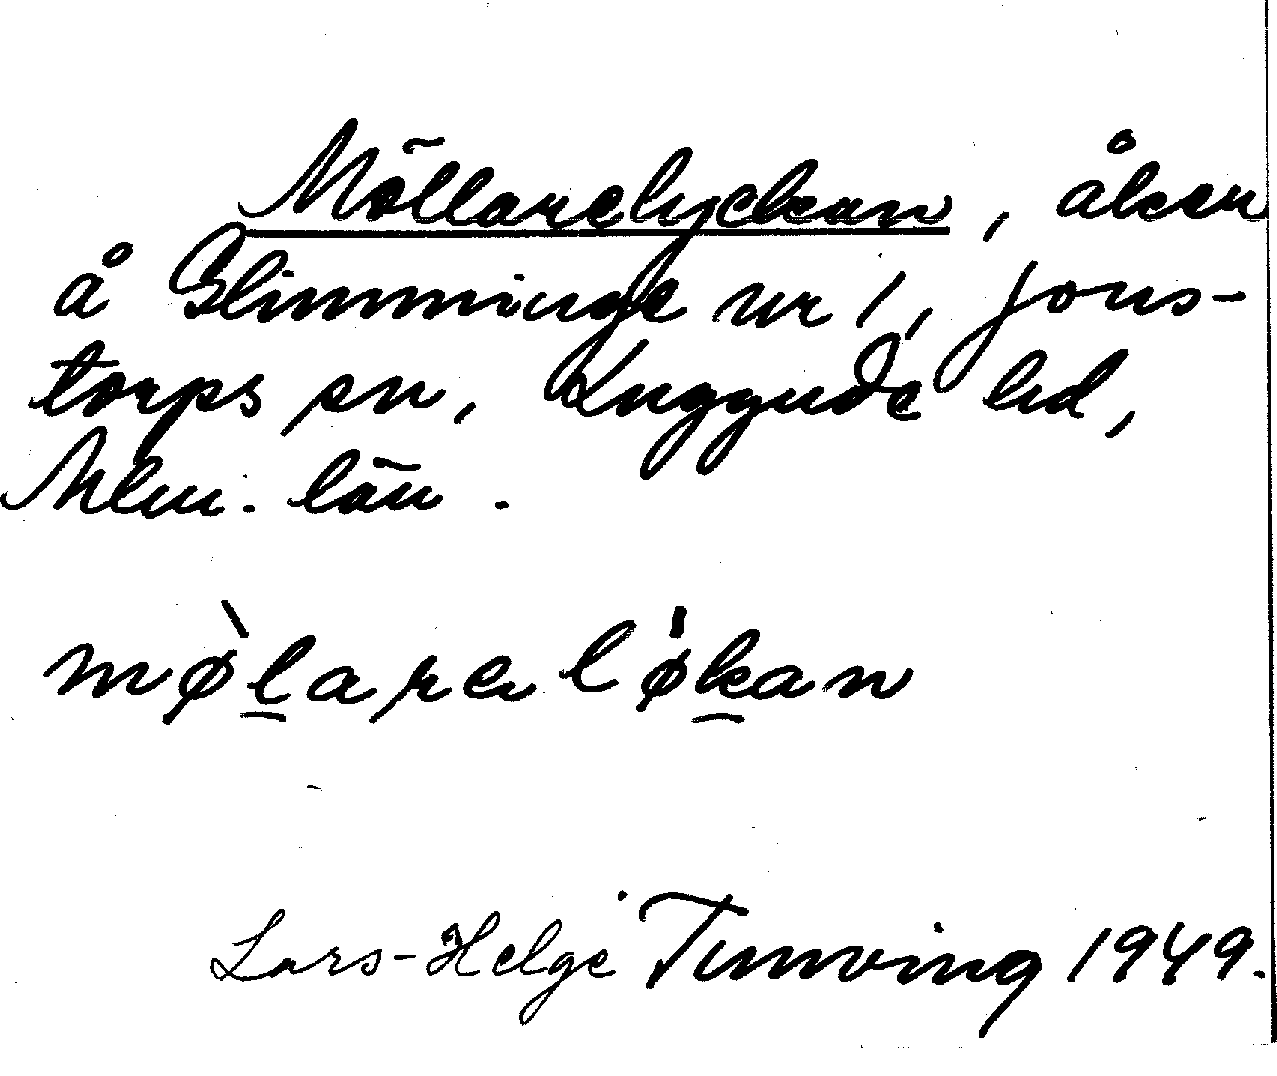 Möllarelyckan, åker
å Glimminge nr 1, Jons-
torps sn, Luggude hd,
Mlm. län.
mø̀larelø̍kan
Lars-Helge Tunving 1949.